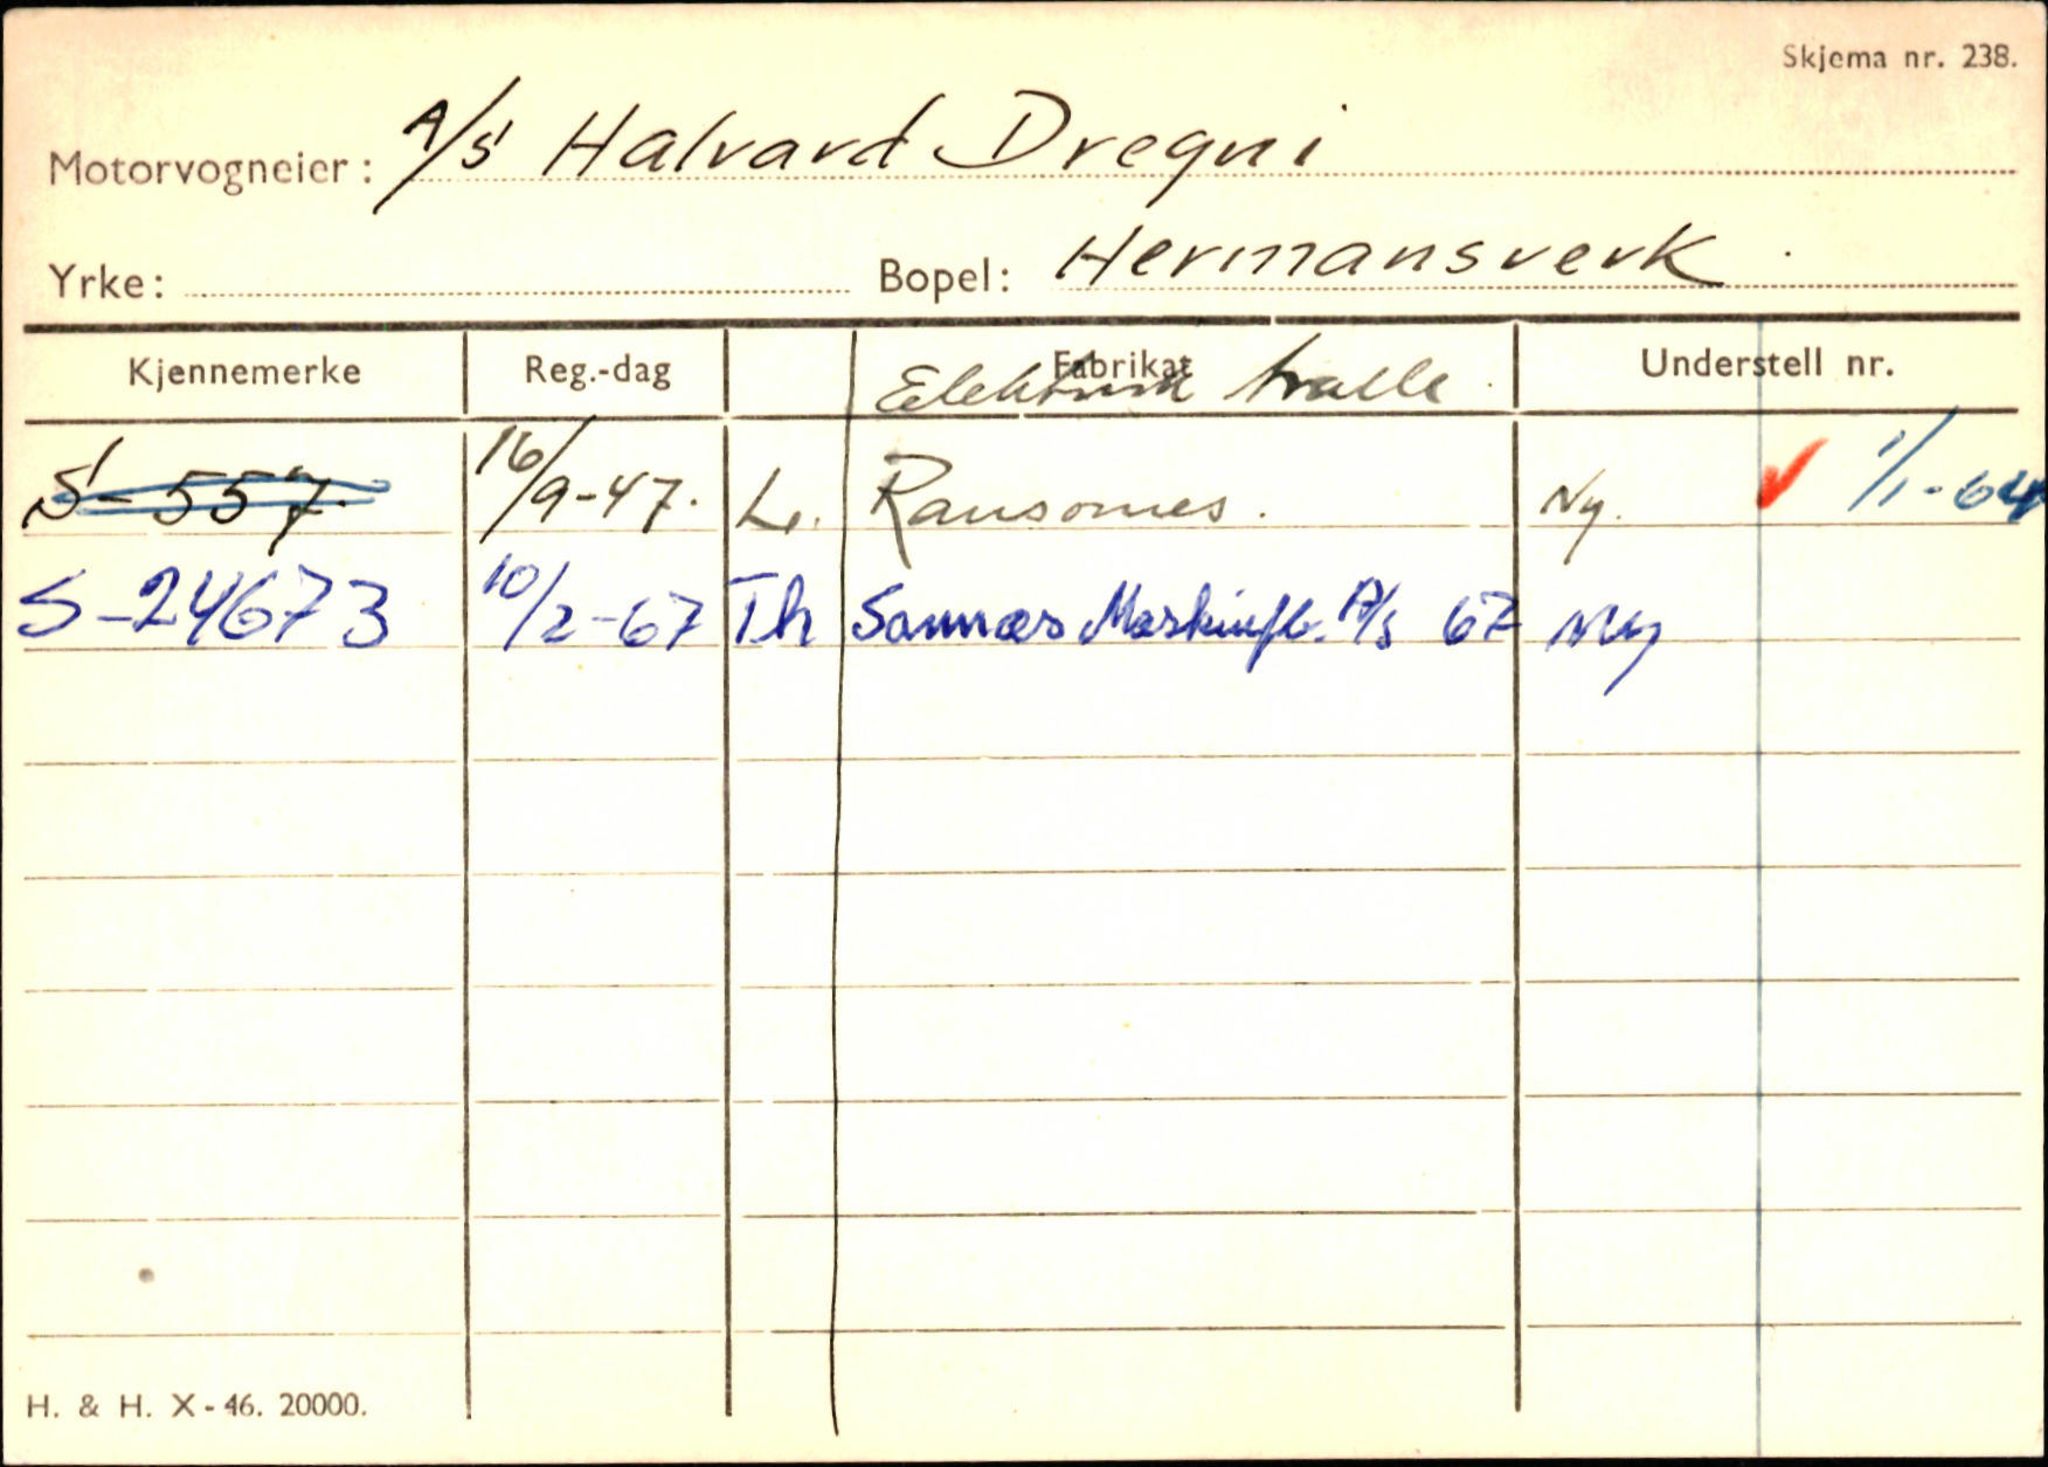 Skjema nr. 238.
Motorvogneier: A/S Halvard Dregni
Yrke: Bopel: Hermansverk.
Kjennemerke Reg.-dag Fabrikat Understell nr.
Elektrisk tralle.
S-557. 16/9-47. L. Ransomes. Ny. ✓ 1/1-64
S-24673 10/2-67 Th A/S 67 Ny
H. & H. X-46. 20000.